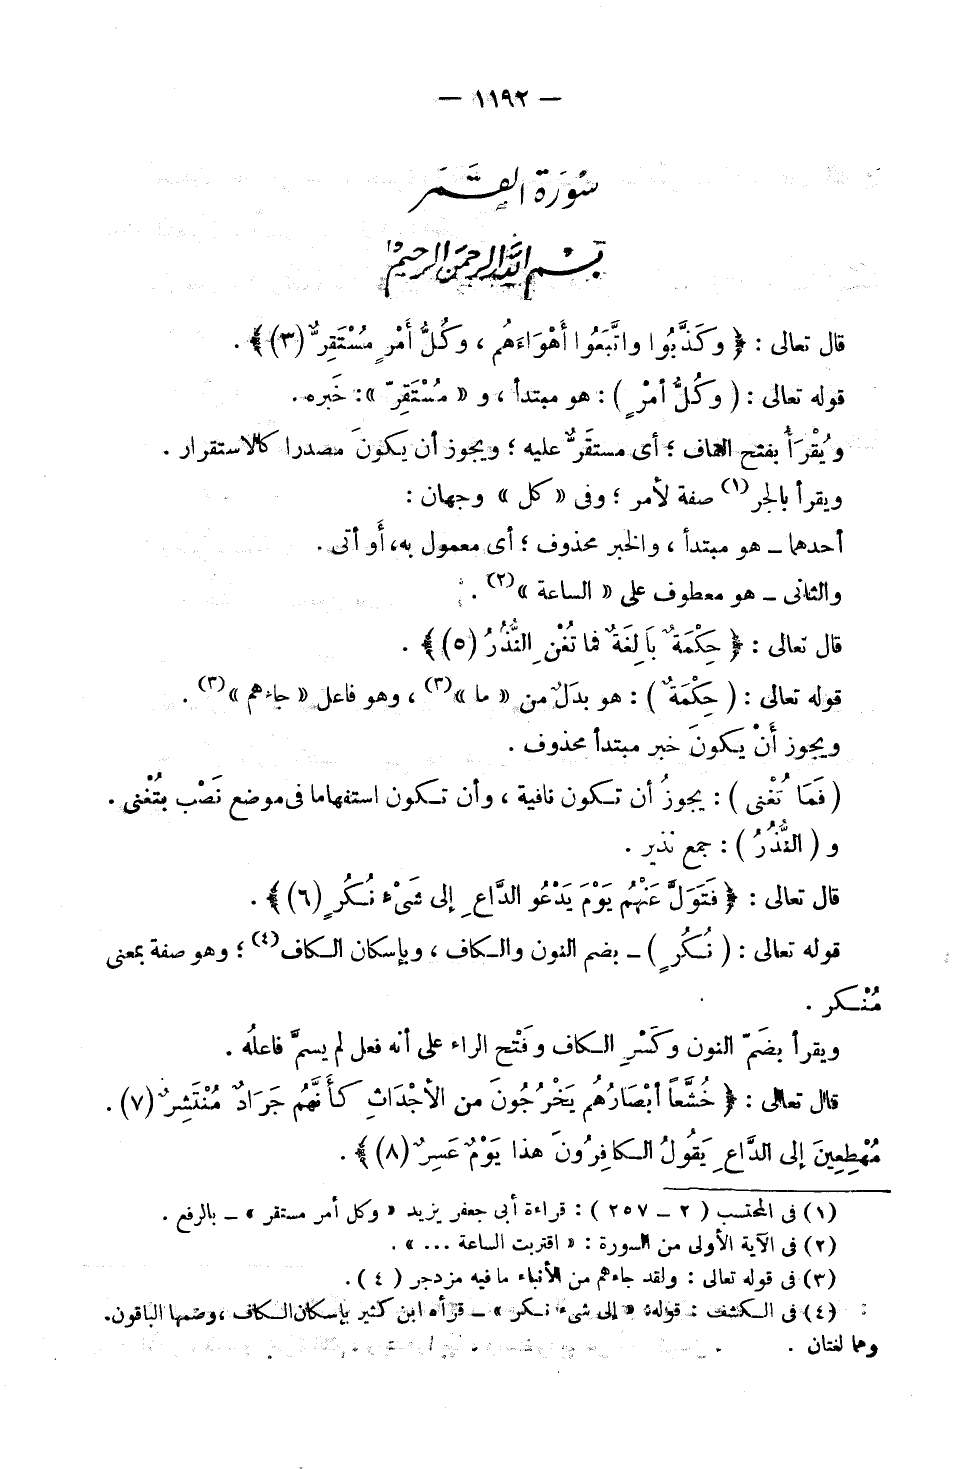 — ١١٩٢ —
سُورَة القَمَر
بِسْمِ اللهِ الرحمن الرحيم
قال تعالى : ﴿ وَكَذَّبُوا واتَّبَعُوا أَهْوَاءَهُم ، وَكُلُّ أَمْرٍ مُسْتَقِرٌّ (٣)﴾ .
قوله تعالى : ( وَكُلُّ أمْرٍ ) : هو مبتدأ ، و « مُسْتَقِرّ »: خَبره .
ويُقْرَأُ بفتح القاف ؛ أى مستقَرٌّ عليه ؛ ويجوز أن يكونَ مصدرا كالاستقرار .
ويقرأ بالجر(١) صفة لأمر ؛ وفى « كل » وجهان :
أحدهما ــ هو مبتدأ ، والخبر محذوف ؛ أى معمول به، أَو أتى .
والثانى ــ هو معطوف على « الساعة »(٢) .
قال تعالى : ﴿ حِكْمَةٌ بَالِغَةٌ فما تُغْنِ النُّذُرُ (٥)﴾ .
قوله تعالى : ( حِكْمَةٌ ) : هو بدَلٌ من « ما »(٣) ، وهو فاعل « جاءهم »(٣) .
ويجوز أَنْ يكونَ خبر مبتدأ محذوف .
( فَمَا تُغْنى ) : يجوزُ أن تكون نافية ، وأن تكون استفهاما فى موضع نَصْب بتُغْنى .
و ( النُّذُرُ ) : جمع نذير .
قال تعالى : ﴿ فَتَوَلَّ عَنْهُم يَوْمَ يَدْعُو الدَّاعِ إلى شَىْءٍ نُكُرٍ (٦)﴾ .
قوله تعالى : ( نُكُرٍ ) ــ بضم النون والكاف ، وبإسكان الكاف(٤) ؛ وهو صفة بمعنى
مُنْكر .
ويقرأ بضَمّ النون وكَسْرِ الكاف وفَتْح الراء على أنه فعل لم يسمَّ فاعلُه .
قال تعالى : ﴿ خُشَّعاً أبْصَارُهُم يَخْرُجُونَ من الأجْدَاثِ كَأَنَّهُم جَرَادٌ مُنْتَشِرٌ (٧) .
مُهْطِعِينَ إلى الدَّاعِ يَقُولُ الكافِرُونَ هذا يَوْمٌ عَسِرٌ (٨)﴾ .
(١) فى المحتسب ( ٢ ــ ٢٥٧ ) : قراءة أبى جعفر يزيد « وكل أمر مستقر » ــ بالرفع .
(٢) فى الآية الأولى من السورة : « اقتربت الساعة ... » .
(٣) فى قوله تعالى : ولقد جاءهم من الأنباء ما فيه مزدجر ( ٤ ) .
(٤) فى الكشف : قوله: « إلى شىء نكر » ــ قرأه ابن كثير بإسكان الكاف ، وضمها الباقون.
وهما لغتان .